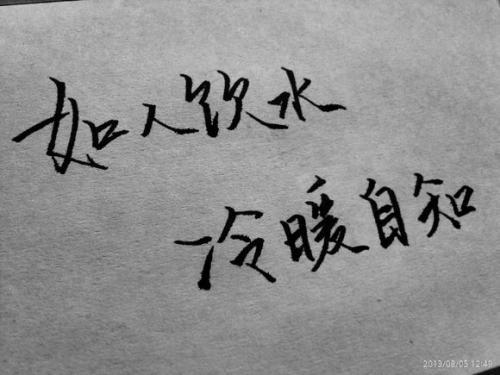 如人饮水
冷暖自知
2019/08/05 12:49